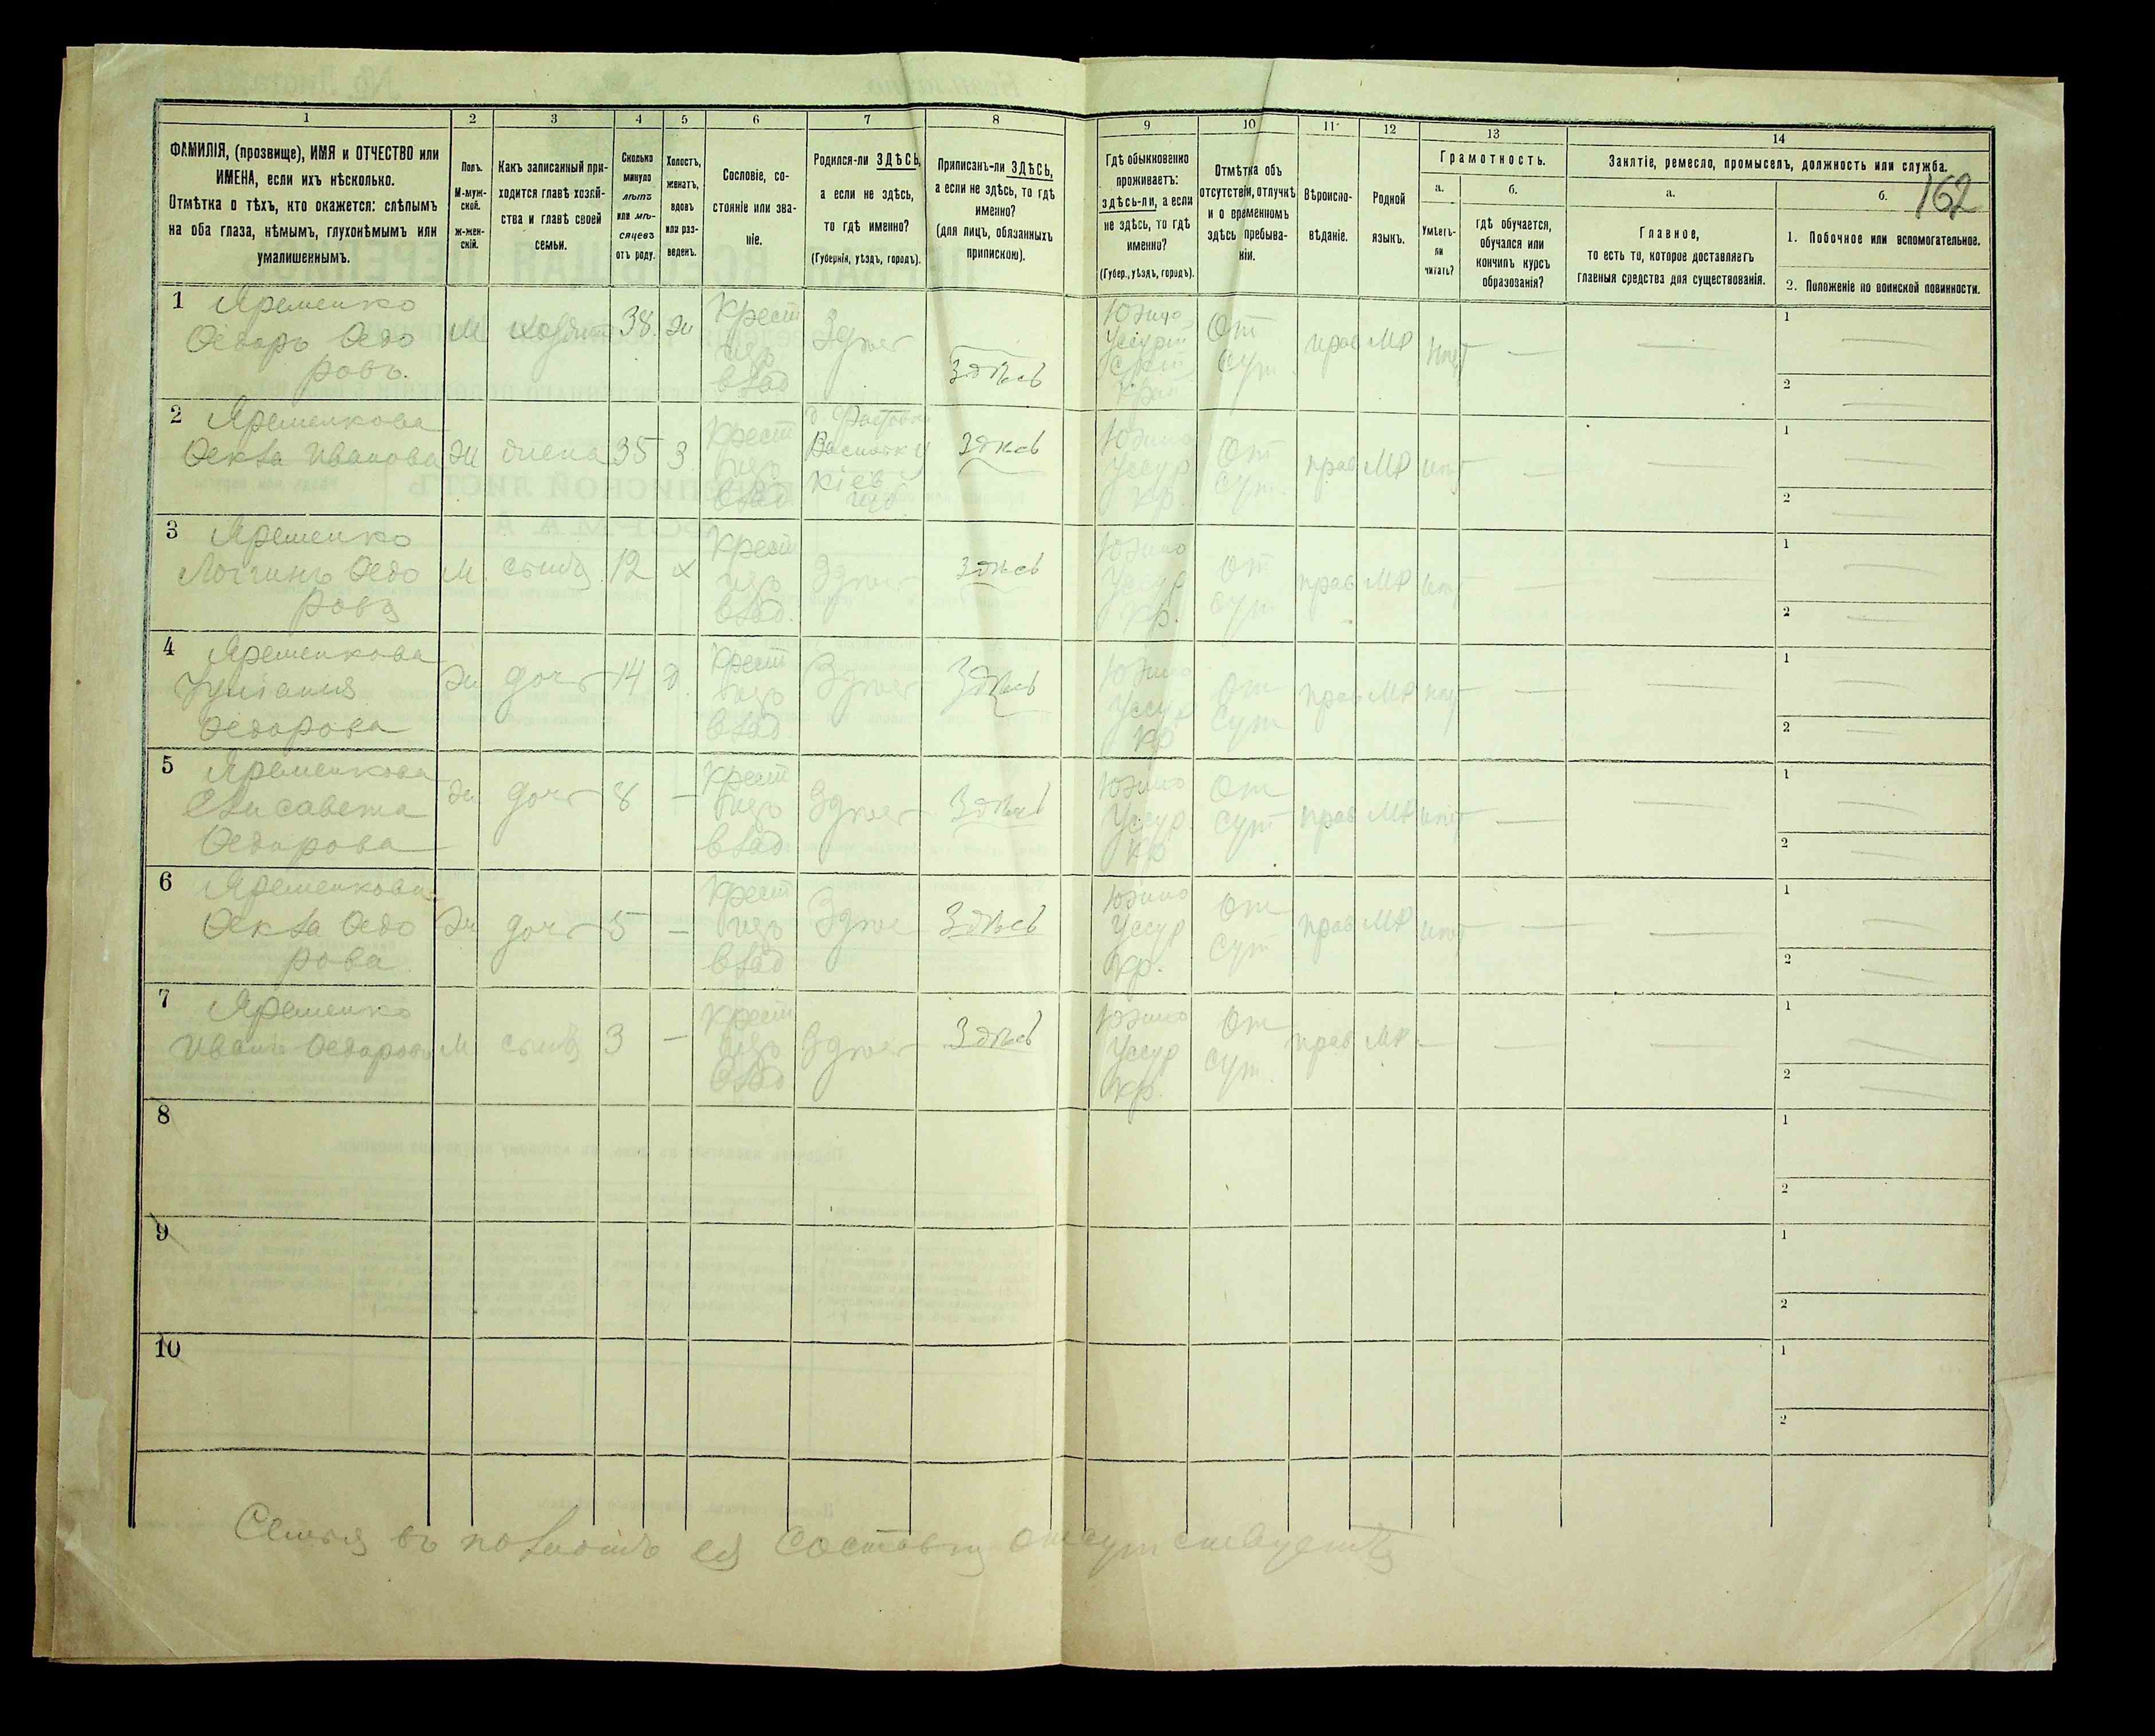 162
1
2
3
4
5
6
7
8
9
10
11
12
13
14
ФАМИЛІЯ, (прозвище), ИМЯ и ОТЧЕСТВО или
ИМЕНА, если ихъ нѣсколько.
Отмѣтка о тѣхъ, кто окажется: слѣпымъ
на оба глаза, нѣмымъ, глухонѣмымъ или
умалишеннымъ.
Полъ.
М-муж-
ской.
ж-жен-
скій.
Какъ записанный при-
ходится главѣ хозяй-
ства и главѣ своей
семьи.
Сколько
минуло
лѣтъ
или мѣ-
сяцевъ
отъ роду.
Холостъ,
женатъ,
вдовъ
или раз-
веденъ.
Сословіе, со-
стояніе или зва-
ніе.
Родился-ли ЗДѢСЬ,
а если не здѣсь,
то гдѣ именно?
(Губернія, уѣздъ, городъ).
Приписанъ-ли ЗДѢСЬ,
а если не здѣсь, то гдѣ
именно?
(для лицъ, обязанныхъ
припискою).
Гдѣ обыкновенно
проживаетъ:
здѣсь-ли, а если
не здѣсь, то гдѣ
именно?
(Губер., уѣздъ, городъ).
Отмѣтка объ
отсутствіи, отлучкѣ
и о временномъ
здѣсь пребыва-
ніи.
Вѣроиспо-
вѣданіе.
Родной
языкъ.
Грамотность.
а.
Умѣетъ-
ли
читать?
б.
гдѣ обучается,
обучался или
кончилъ курсъ
образованія?
Занятіе, ремесло, промыселъ, должность или служба.
а.
Главное,
то есть то, которое доставляетъ
главныя средства для существованія.
б.
1. Побочное или вспомогательное.
2. Положеніе по воинской повинности.
1
Яременко
Ѳедоръ Ѳедо
ровъ.
М
38
Крест
влад
Здѣсь
Здѣсь
Южно
От
сут
прав
МР
нѣт
1
2
2
Яременкова
Ѳекла Иванова
Ж
жена
35
З
Крест
влад
Кіев
Здѣсь
Южно
Уссур
кр.
От
сут.
прав
МР
нѣт
1
2
3
Яременко
Логгинъ Ѳедо
ровъ
М
сынъ
12
х
Крест
влад.
Здѣсь
Здѣсь
Южно
Уссур
кр.
От
сут
прав
МР
нѣт
1
2
4
Яременкова
Ѳедорова
Ж
доч
14
д
Крест
влад
Здѣсь
Здѣсь
Южно
Уссур
кр
От
сут
прав
МР
нѣт
1
2
5
Яременкова
Елисавета
Ѳедорова
Ж
доч
8
Крест
влад
Здѣсь
Здѣсь
Южно
Уссур
кр
От
сут
прав
МР
нѣт
1
2
6
Яременкова
Ѳекла Ѳедо
рова
Ж
доч
5
Крест
влад
Здѣсь
Здѣсь
Южно
Уссур
кр.
От
сут
прав
МР
нѣт
1
2
7
Яременко
Иванъ Ѳедоровъ
М
сынъ
3
Крест
влад
Здѣсь
Здѣсь
Южно
Уссур
кр.
От
сут.
прав
МР
1
2
8
1
2
9
1
2
10
1
2
Семья въ полномъ ея составѣ отсутствуетъ